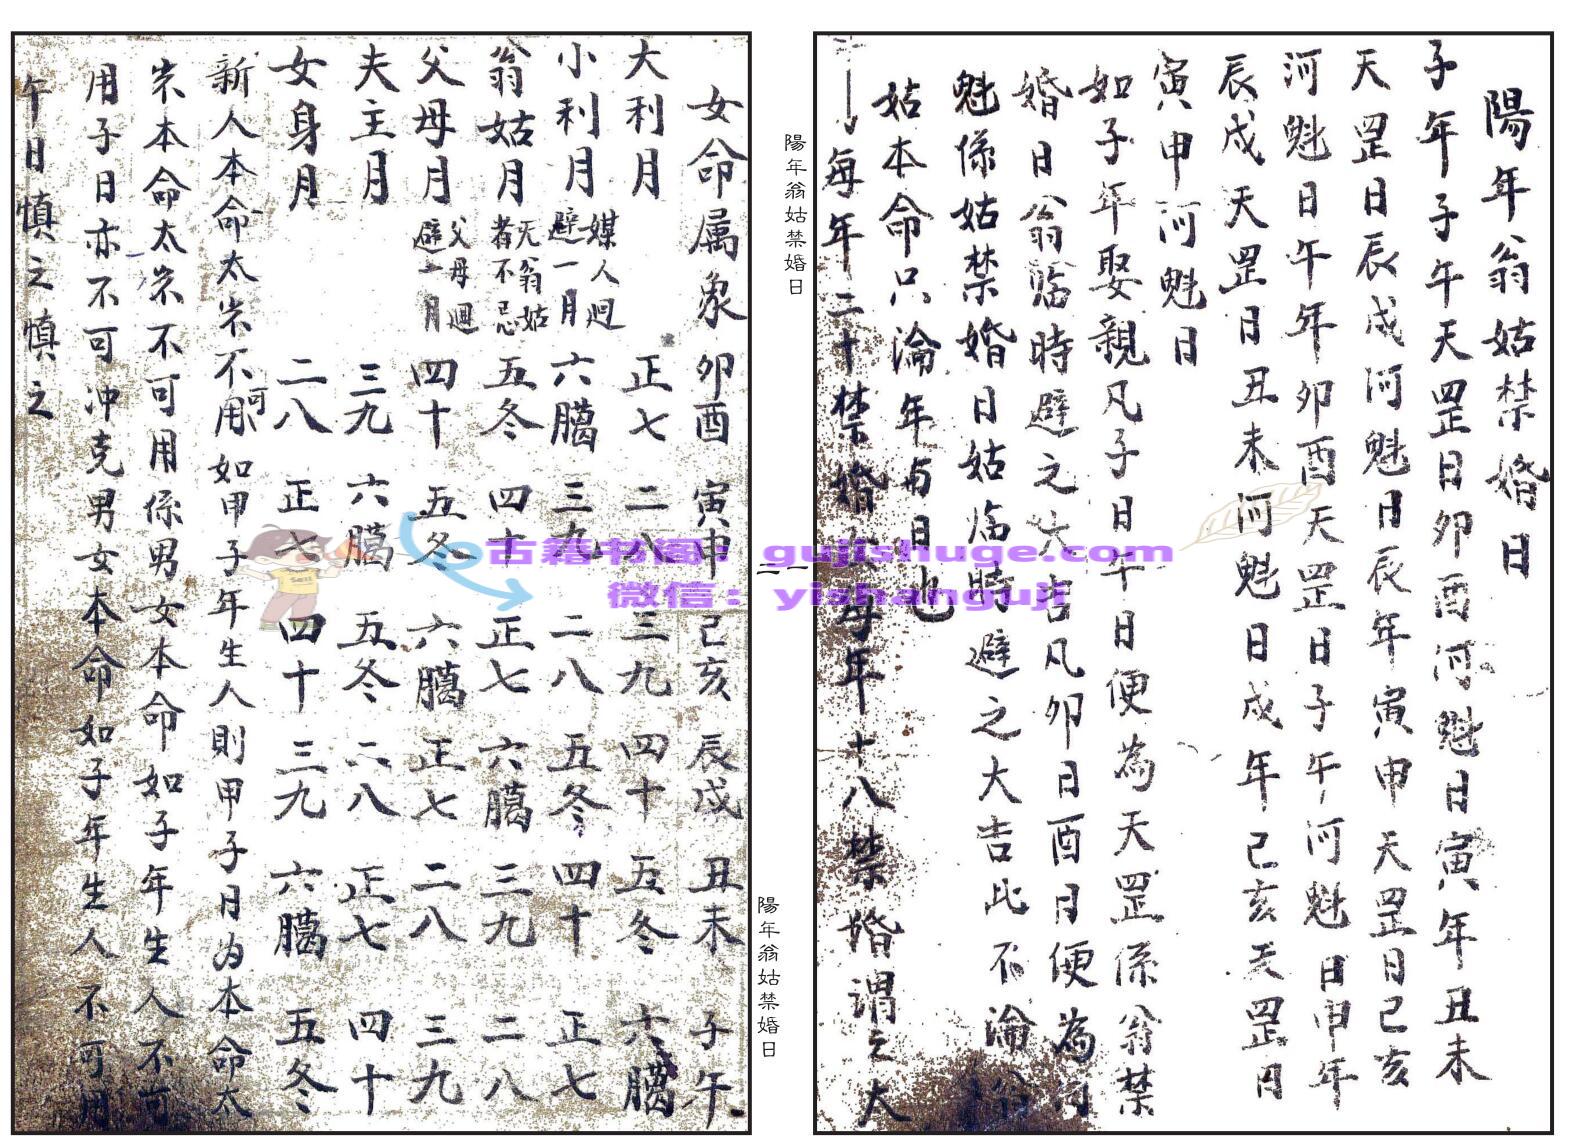 陽年翁姑禁婚日
子年子午天罡日卯酉河魁日寅年丑未
天罡日辰戌河魁日辰年寅申天罡日己亥
河魁日午年卯酉天罡日子午河魁日申年
辰戌天罡日丑未河魁日戌年己亥天罡日
寅申河魁日
如子年娶親凡子日午日便為天罡係翁禁
婚日翁臨時避之大吉凡卯日酉日便為河
魁係姑禁婚日姑臨時避之大吉此不淪翁
姑本命只淪年与日也
每年二十禁婚 每年十八禁婚謂之大
陽年翁姑禁婚日
二一
陽年翁姑禁婚日
女命属象 卯酉 寅申 己亥 辰戌 丑未 子午
大利月 正七 二八 三九 四十 五冬 六臈
小利月 媒人迴避一月 六臈 三九 二八 五冬 四十 正七
翁姑月 无翁姑者不忌 五冬 四十 正七 六臈 三九 二八
父母月 父母迴避一月 四十 五冬 六臈 正七 二八 三九
夫主月 三九 六臈 五冬 二八 正七 四十
女身月 二八 正七 四十 三九 六臈 五冬
新人本命太岁不可用如甲子年生人則甲子日为本命太
岁本命太岁不可用係男女本命如子年生人不可
用子日亦不可冲克男女本命如子年生人不可用
午日慎之慎之
古籍书阁：gujishuge.com
微信：yishanguji